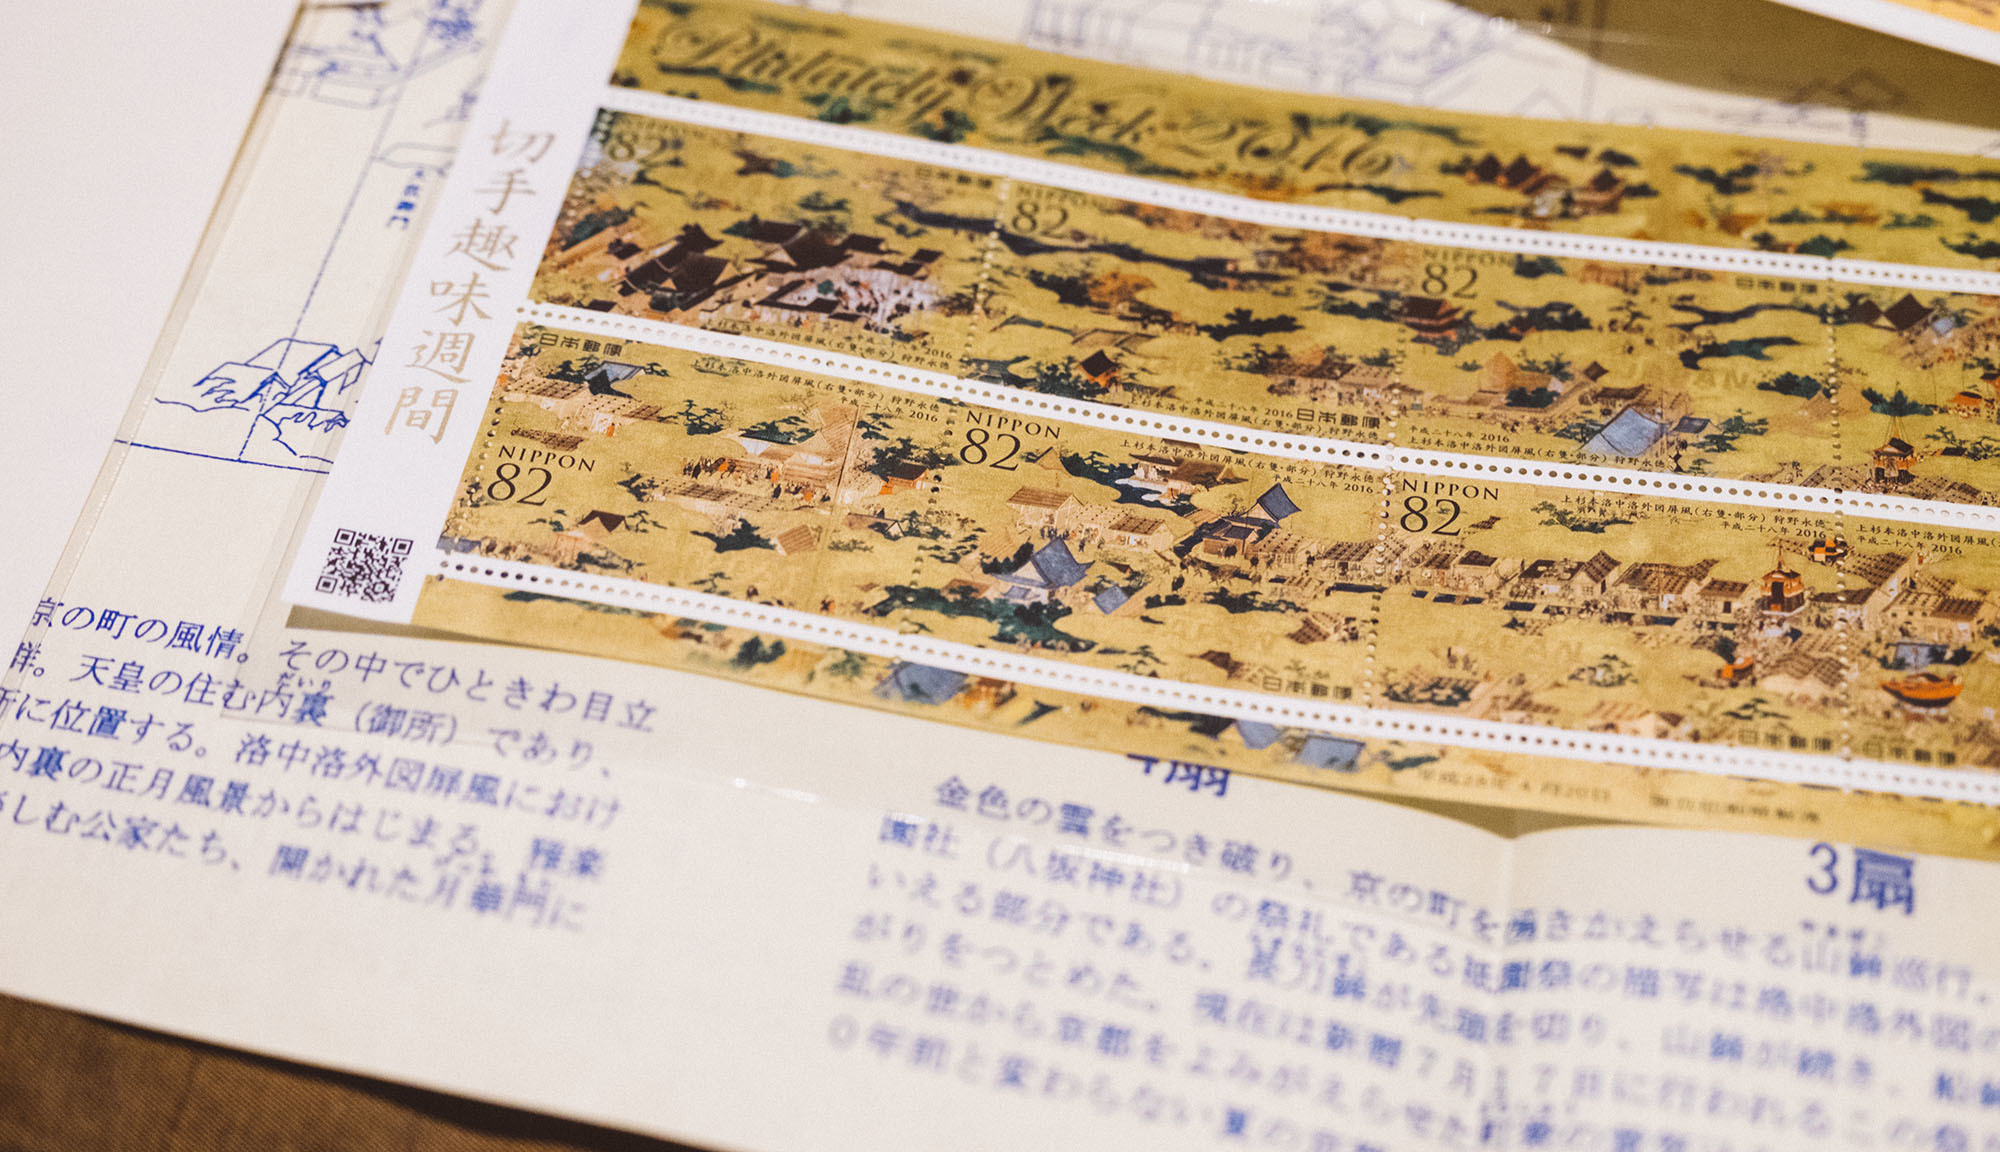 Philately Week 2016
切手趣味週間
82
日本郵便
NIPPON
82
NIPPON
82
日本郵便
上杉本洛中洛外図屏風(右隻・部分) 狩野永徳
平成二十八年 2016
上杉本洛中洛外図屏風(右隻・部分) 狩野永徳
平成二十八年 2016
日本郵便
平成二十八年 2016
上杉本洛中洛外図屏風(右隻・部分) 狩野永徳
日本郵便
NIPPON
82
NIPPON
82
上杉本洛中洛外図屏風(右隻・部分) 狩野永徳
平成二十八年 2016
日本郵便
NIPPON
82
上杉本洛中洛外図屏風(右隻・部分) 狩野永徳
平成二十八年 2016
日本郵便
上杉本洛中洛外図屏風(右隻・部
平成二十八年 2016
日本郵便
平成28年4月20日
京の町の風情。その中でひときわ目立
天皇の住む内裏(御所)であり、
だいり
に位置する。洛中洛外図屏風におけ
内裏の正月風景からはじまる。
しむ公家たち、開かれた月華門に
4扇
金色の雲をつき破り、京の町を湧きかえらせる山鉾巡行。
園社(八坂神社)の祭礼である祇園祭の描写は洛中洛外図の
いえる部分である。長刀鉾が先頭を切り、山鉾が続き、
がりをつとめた。現在は新暦7月17日に行われるこの祭
乱の世から京都をよみがえらせた町衆の
0年前と変わらない夏の
3扇